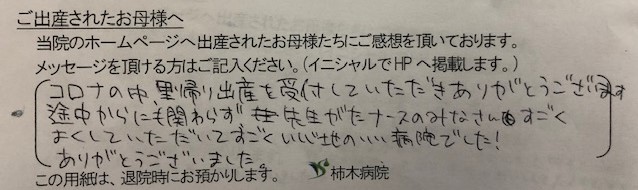 ご出産されたお母様へ
当院のホームページへ出産されたお母様たちにご感想を頂いております。
メッセージを頂ける方はご記入ください。(イニシャルでHPへ掲載します。)
コロナの中、里帰り出産を受付していただきありがとうございます
途中からにも関わらず 先生がたナースのみなさんもすごく
よくしていただいてすごくいい病院でした!
ありがとうございました。
この用紙は、退院時にお預かりします。 柿木病院